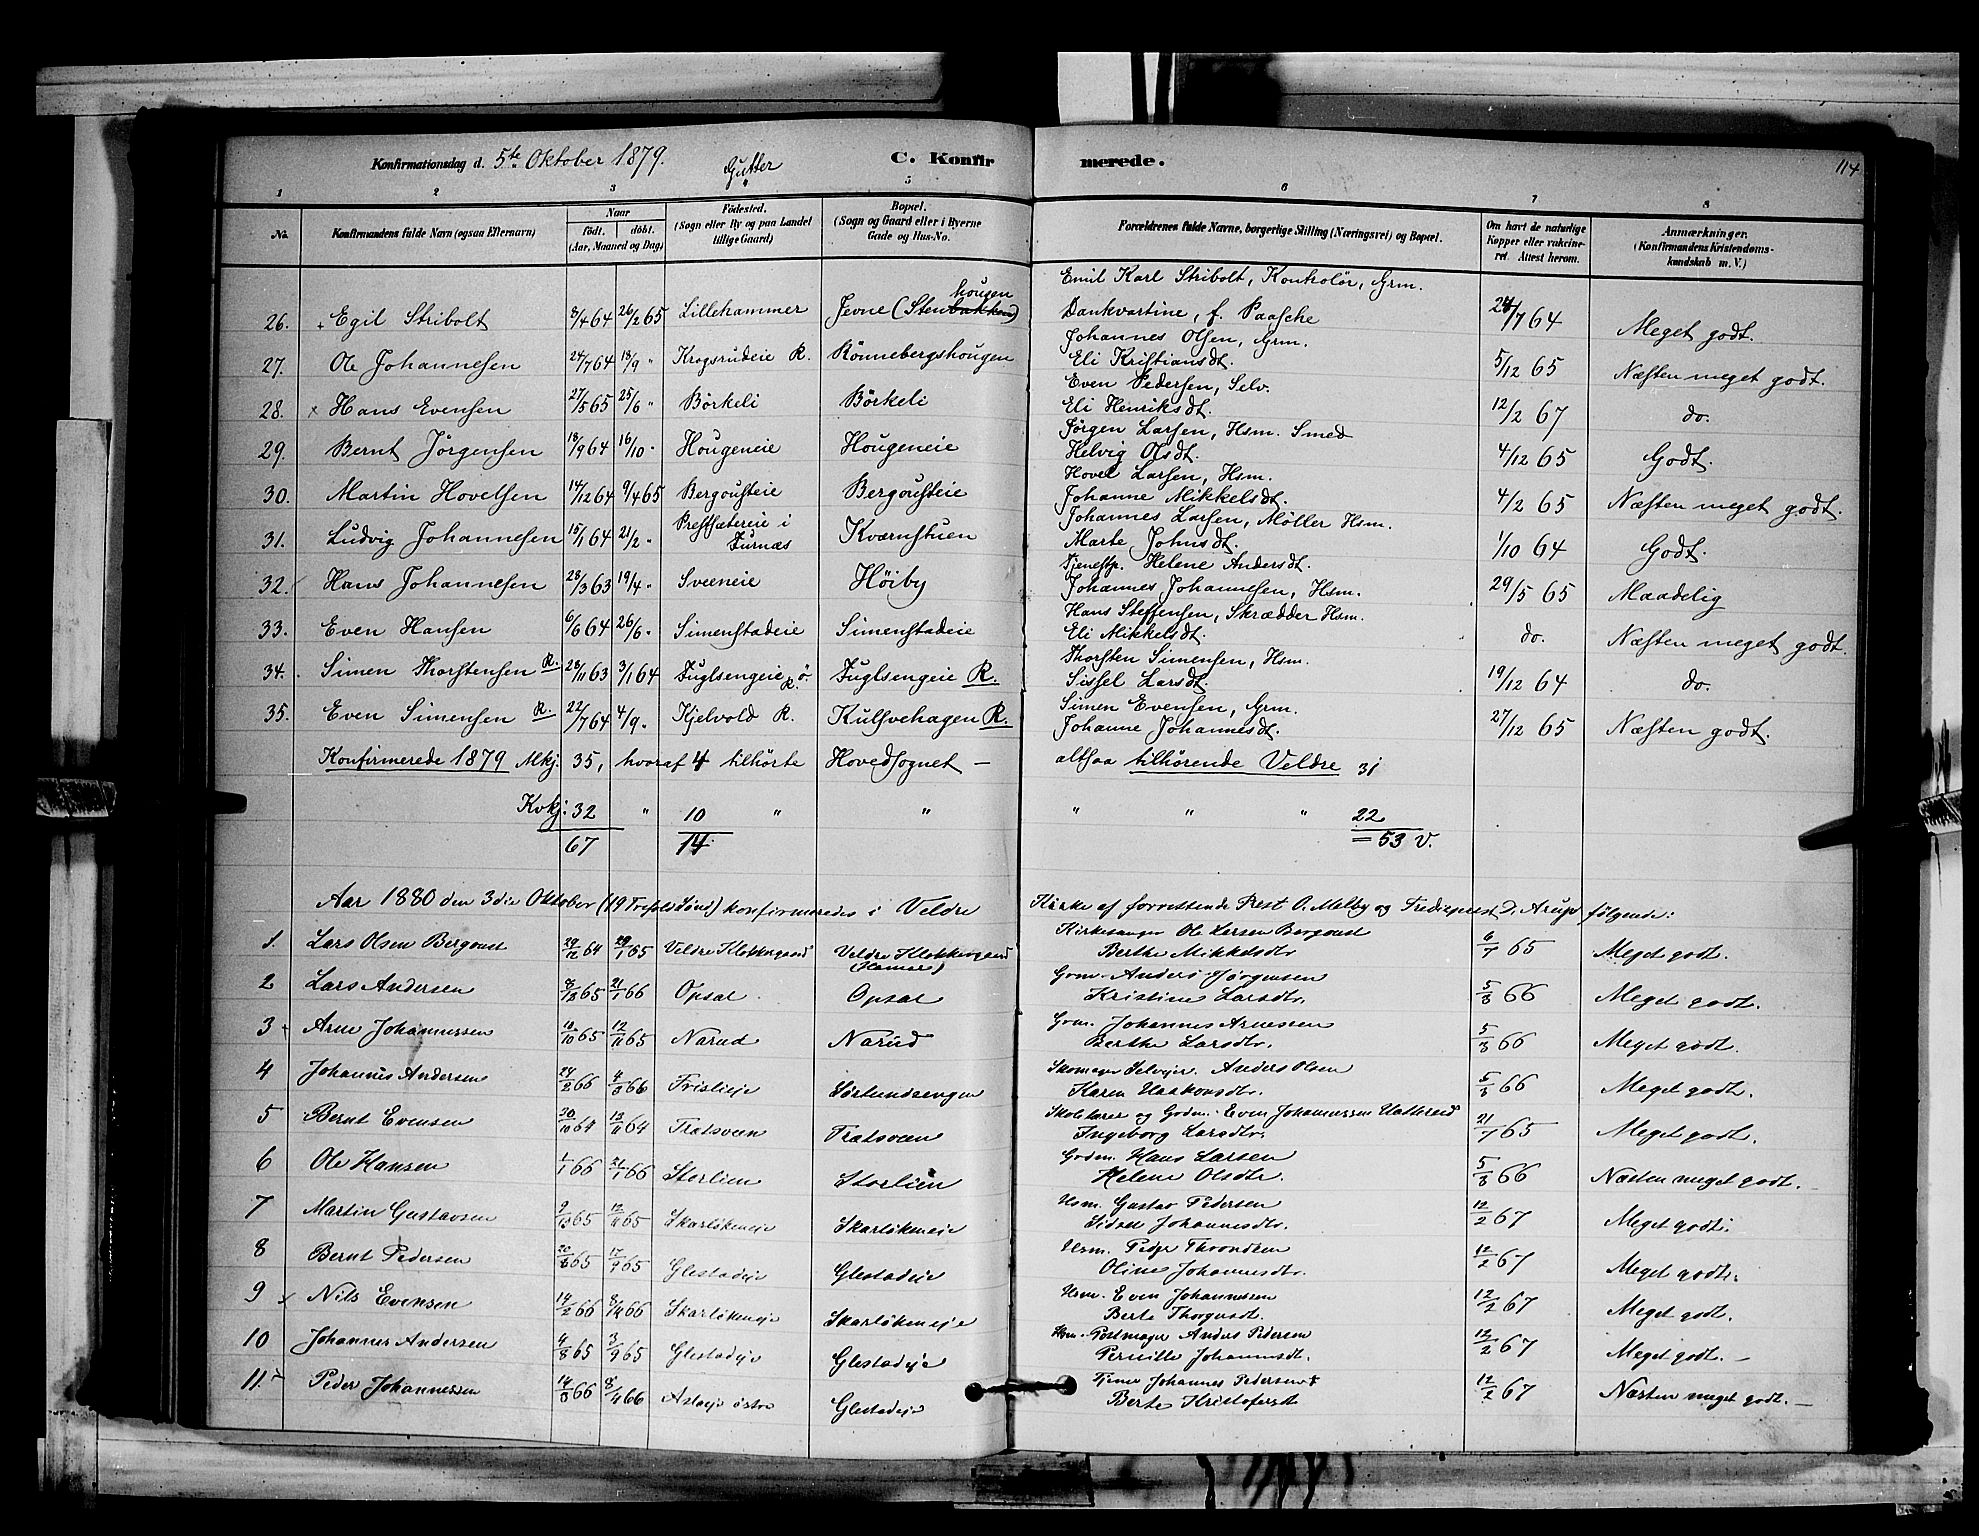 Konfirmationsdag d. 5te Oktober 1879. Gutter C. Konfir merede. 114
1 2 3 5 6 7 8
No. Konfirmandens fulde Navn (ogsaa Efternavn) Naar født. døbt. (Aar, Maaned og Dag) Födested. (Sogn eller By og paa Landet tillige Gaard) Bopæl. (Sogn og Gaard eller i Byerne Gade og Hus-No. Forældrenes fulde Navne, borgerlige Stilling (Næringsvei) og Bopæl. Om havt de naturlige Kopper eller vaccineret. Attest herom. Anmærkninger. (Konfirmandens Kristendomskundskab m. V.)
Emil Karl Stribolt, Kontrolör, Grm.
26. Egil Stribolt 8/4 64 26/2 65 Lillehammer Jevne (Stenbakken) hougen Dankvartine, f. Paasche 24/7 64 Meget godt.
Johannes Olsen, Grm.
27. Ole Johannesen 24/7 64 18/9 " Krogsrudeie R. Rönnebergshougen Eli Kristiansdt. 5/12 65 Næsten meget godt.
Even Pedersen, Selv.
28. x Hans Evensen 27/5 65 25/6 " Börkeli Börkeli Eli Henriksdt. 12/2 67 do.
Jörgen Larsen, Hsm. Smed
29. Bernt Jörgensen 18/9 64 16/10 " Hougeneie Hougeneie Helvig Olsdt. 4/12 65 Godt.
Hovel Larsen, Hsm.
30. Martin Hovelsen 14/12 64 9/4 65 Bergousteie Bergousteie Johanne Mikkelsdt. 4/2 65 Næsten meget godt.
Johannes Larsen, Möller Hsm.
31. Ludvig Johannesen 15/1 64 21/2 " Prestsætereie i Furnæs Kværnstuen Marte Johnsdt. 1/10 64 Godt.
Tjenestp. Helene Andersdt.
32. Hans Johannesen 28/3 63 19/4 " Sveeneie Höiby Johannes Johannesen, Hsm. 29/5 65 Maadelig
Hans Steffensen, Skrædder Hsm.
33. Even Hansen 6/6 64 26/6 " Simenstadeie Simenstadeie Eli Mikkelsdt. do. Næsten meget godt.
Thorsten Simensen, Hsm.
34. Simen Thorstensen R. 28/11 63 3/1 64 Fuglsengeie ö. R. Fuglsengeie R. Sissel Larsdt. 19/12 64 do.
Simen Evensen, Grm.
35. Even Simensen R. 22/7 64 4/9 " Kjelvold R. Kulsvehagen R. Johanne Johannesdt. 27/12 65 Næsten godt.
Konfirmerede 1879 Mkj. 35, hvoraf 4 tilhörte Hovedsognet — altsaa tilhörende Veldre 31
Kvkj. 32 " 10 " " " " " 22
67 14 = 53 V.
Aar 1880 den 3die Oktober (19 Trefolds Sönd) konfirmeredes i Veldre Kirke af forrettende Prest O. Melby og Frediepræst D. Arup følgende:
Kirkesanger Ole Larsen Bergoust
1. Lars Olsen Bergoust 29/12 64 29/1 65 Veldre Klokkergaard Veldre Klokkergaard (Hamar) Berthe Mikkelsdtr 6/7 65 Meget godt.
Grm. Anders Jørgensen
2 Lars Andersen 8/12 65 21/1 66 Opsal Opsal Kristine Larsdtr. 5/3 66 Meget godt.
Grm. Johannes Arnessen
3 Arne Johannessen 10/10 65 12/11 65 Narud Narud Berthe Larsdtr. 5/3 66 Meget godt.
Skomager Selvejer. Anders Olsen
4 Johannes Andersen 24/2 66 4/3 66 Frislieje Sørlundsengen Karen Haakonsdtr. 5/3 66 Meget godt.
Skolelærer og Grdm. Even Johannessen Hattrud
5 Bernt Evensen 20/10 64 13/11 64 Tratsveen Tratsveen Ingeborg Larsdtr. 21/7 65 Meget godt.
Grdm. Hans Larsen
6 Ole Hansen 1/1 66 21/1 66 Storlien Storlien Helene Olsdtr. 5/3 66 Næsten meget godt.
Hsm. Gustav Pedersen
7 Martin Gustavsen 9/10 65 12/11 65 Skarløkeneje Skarløkeneje Johannesdtr. 12/2 67 Meget godt.
Hsm. Peder Throndsen
8 Bernt Pedersen 20/8 65 17/9 65 Glestadeje Glestadeje Oline Johannesdtr. 12/2 67 Meget godt.
Hsm. Even Johannesen
9 x Nils Evensen 14/2 66 8/4 66 Skarløkeneje Skarløkeneje Berte Thorgersdt. 12/2 67 Meget godt.
Hsm. Anders Pedersen
10 Johannes Andersen 4/8 65 3/9 65 Glestadeje Glestadeje Pernille Johannesdt. 12/2 67 Meget godt. —
Tjener Johannes Pedersen
11. Peder Johannessen 14/3 66 8/4 66 østre Glestadeje Berte Kristofersdt 12/2 67 Næsten meget godt. —